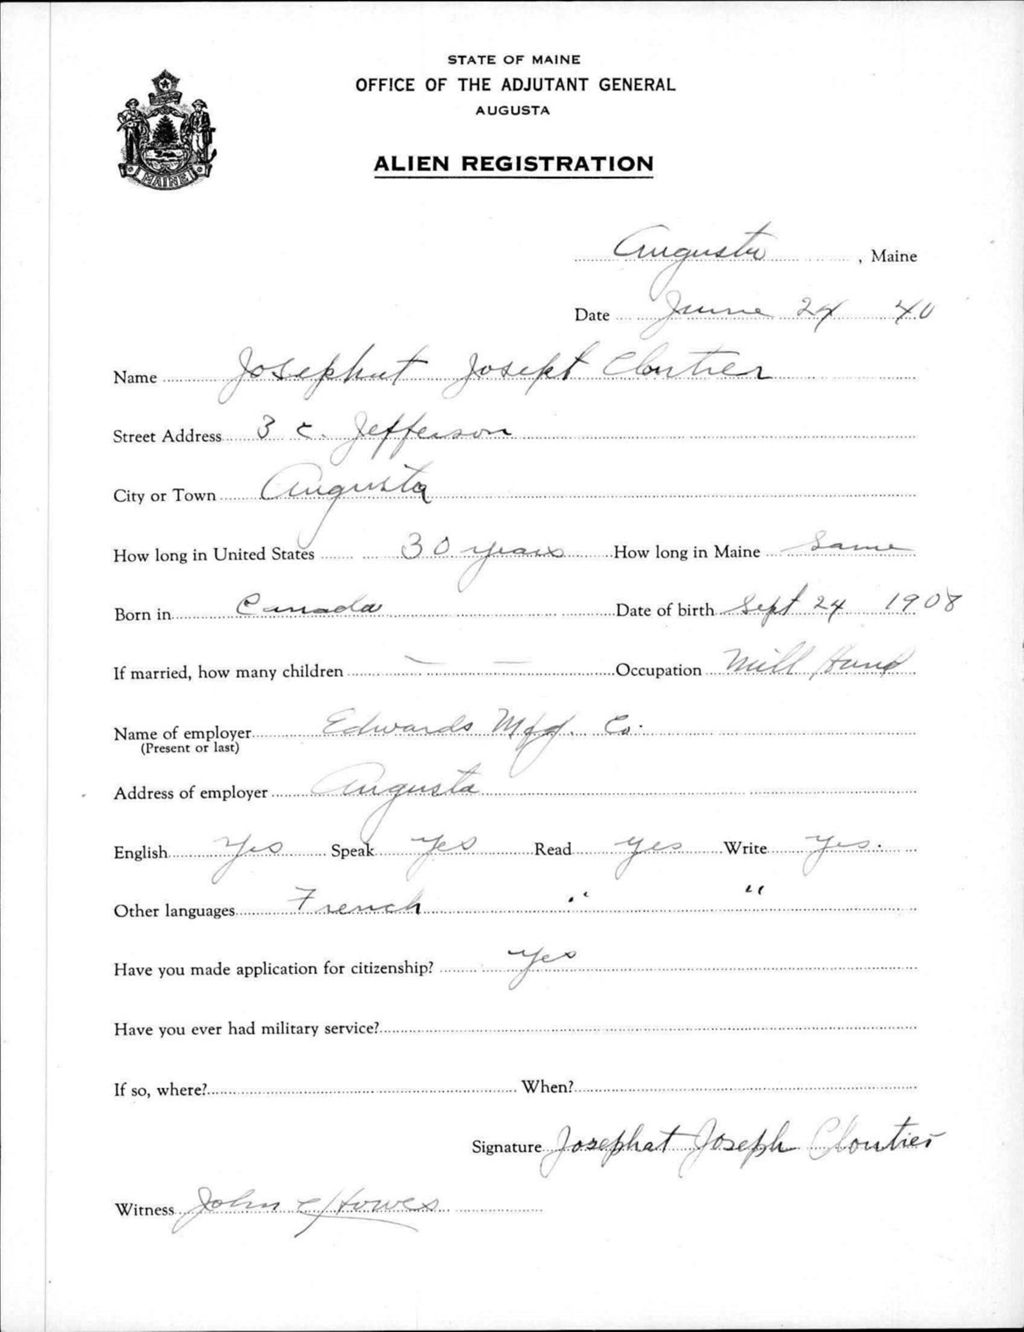 STATE OF MAINE
OFFICE OF THE ADJUTANT GENERAL
AUGUSTA
MAINE
ALIEN REGISTRATION
Augusta, Maine
Date June 24 40
Name Josephat Joseph Cloutier
Street Address 3 c. Jefferson
City or Town Augusta
How long in United States 30 years How long in Maine Same
Born in Canada Date of birth Sept 24 1908
If married, how many children — — Occupation Mill Hand
Name of employer Edwards Mfg. Co.
(Present or last)
Address of employer Augusta
English Yes Speak Yes Read Yes Write Yes.
Other languages French " "
Have you made application for citizenship? Yes
Have you ever had military service?
If so, where? When?
Signature Josephat Joseph Cloutier
Witness John E Howes